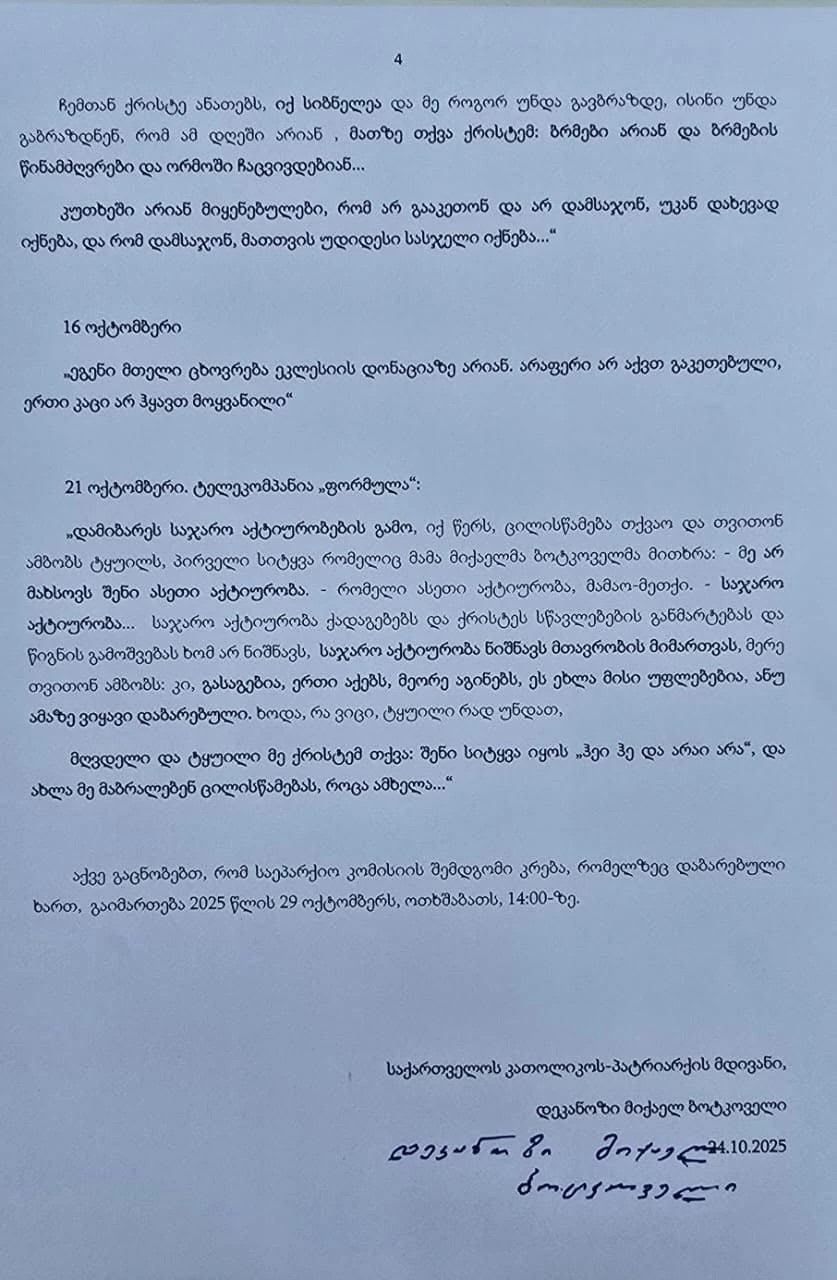 4
ჩემთან ქრისტე ანათებს, იქ სიბნელეა და მე როგორ უნდა გავბრაზდე, ისინი უნდა
გაბრაზდნენ, რომ ამ დღეში არიან , მათზე თქვა ქრისტემ: ბრმები არიან და ბრმების
წინამძღვრები და ორმოში ჩაცვივდებიან...
კუთხეში არიან მიყენებულები, რომ არ გააკეთონ და არ დამსაჯონ, უკან დახევად
იქნება, და რომ დამსაჯონ, მათთვის უდიდესი სასჯელი იქნება...“
16 ოქტომბერი
„ეგენი მთელი ცხოვრება ეკლესიის დონაციაზე არიან. არაფერი არ აქვთ გაკეთებული,
ერთი კაცი არ ჰყავთ მოყვანილი“
21 ოქტომბერი. ტელეკომპანია „ფორმულა“:
„დამიბარეს საჯარო აქტიურობების გამო, იქ წერს, ცილისწამება თქვაო და თვითონ
ამბობს ტყუილს, პირველი სიტყვა რომელიც მამა მიქაელმა ბოტკოველმა მითხრა: - მე არ
მახსოვს შენი ასეთი აქტიურობა. - რომელი ასეთი აქტიურობა, მამაო-მეთქი. - საჯარო
აქტიურობა... საჯარო აქტიურობა ქადაგებებს და ქრისტეს სწავლებების განმარტებას და
წიგნის გამოშვებას ხომ არ ნიშნავს, საჯარო აქტიურობა ნიშნავს მთავრობის მიმართვას, მერე
თვითონ ამბობს: კი, გასაგებია, ერთი აქებს, მეორე აგინებს, ეს ეხლა მისი უფლებებია, ანუ
ამაზე ვიყავი დაბარებული. ხოდა, რა ვიცი, ტყუილი რად უნდათ,
მღვდელი და ტყუილი მე ქრისტემ თქვა: შენი სიტყვა იყოს „ჰეი ჰე და არაი არა“, და
ახლა მე მაბრალებენ ცილისწამებას, როცა ამხელა...“
აქვე გაცნობებთ, რომ საეპარქიო კომისიის შემდგომი კრება, რომელზეც დაბარებული
ხართ, გაიმართება 2025 წლის 29 ოქტომბერს, ოთხშაბათს, 14:00-ზე.
საქართველოს კათოლიკოს-პატრიარქის მდივანი,
დეკანოზი მიქაელ ბოტკოველი
დეკანოზი მიქაელ 24.10.2025
ბოტკოველი